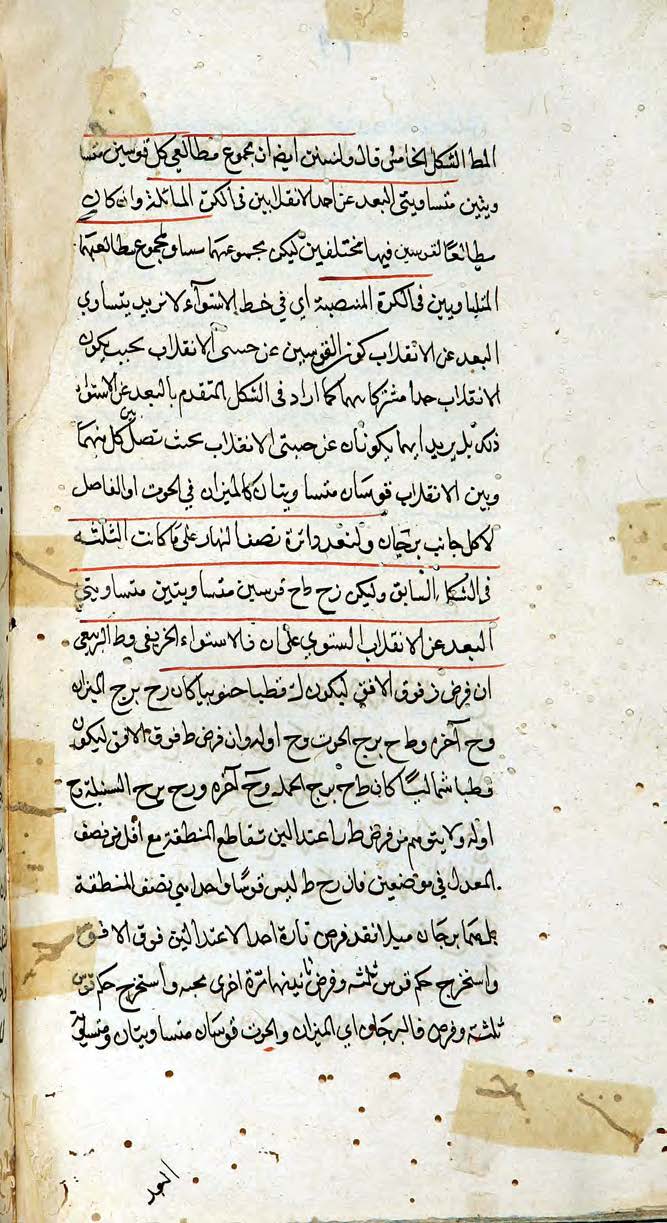 المط الشكل الخامس قال ولنبين ايضا ان مجموع مطالعي كل قوسين متسا
ويتين متساويتي البعد عن احد الانقلابين في الكرة المائلة وان كان
مطالعا القوسين فيها مختلفين ليكن مجموعهما مساو لمجموع مطالعهما
المتساويين في الكرة المنتصبة اي في خط الاستوآء لا نريد بتساوي
البعد عن الانقلاب كون القوسين عن جنبتي الانقلاب بحيث يكون
الانقلاب حدا مشتركا بينهما كما اراد في الشكل المتقدم بالبعد عن الاستواء
ذلك بل يريد انهما يكونان عن جنبتي الانقلاب بحيث تصل بين كل منهما
وبين الانقلاب قوسان متساويتان كالميزان في الحوت اذ الفاصل
لا كل جانب برجان ولنعد دائرة نصف النهار على ما كانت الثلثه
في الشكل السابق وليكن زح طح قوسين متساويتين متساويتي
البعد عن الانقلاب الستوي على ان ز الاستواء الخريفي وط الربيعي
ان فرض ز فوق الافق ليكون ك قطبا جنوبيا كان زح برج الميزان
وح آخره وطح برج الحوت وح اوله وان فرض ط فوق الافق ليكون
قطبا شماليًا كان طح برج الحمل وح آخره وزح برج السنبلة وح
اوله ولا يتوهم من فرض ط ز اعتدالين تقاطع المنطقة مع اقل من نصف
المعدل في موضعين فان زح ط ليس قوسًا واحدا من نصف المنطقة
بل هما برجان مثلا فقد فرض تارة احد الاعتدالين فوق الافق
واستخرج حكم قوس ثلثه وفرض ثانيهما تارة اخرى تحته واستخرج حكم قوس
ثلثة وفرض فالبرجان اي الميزان والحوت قوسان متساويتان ومتساويتا
البعد